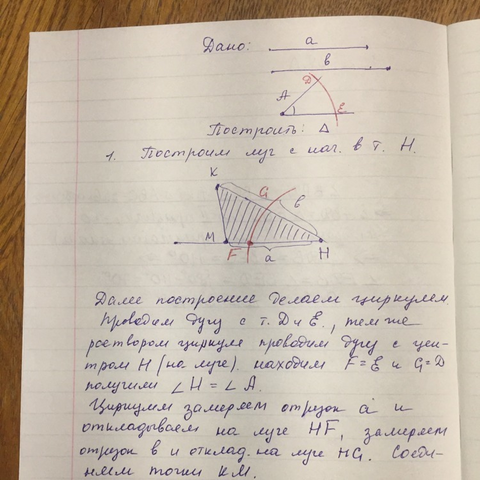 Дано: a
b
A D E
Построить: Δ
1. Построим луч с нач. в т. H.
K
G b
M F a H
Далее построение делаем циркулем
Проводим дугу с т. D и E, тем же
роствором циркуле проводим дугу с цен-
тром H (на луче). находим F=E и G=D
получим ∠H = ∠A.
Циркулем замеряем отрезок a и
откладываем на луче HF, замеряем
отрезок b и отклад. на луче HG. Соеди-
няем точки KM.